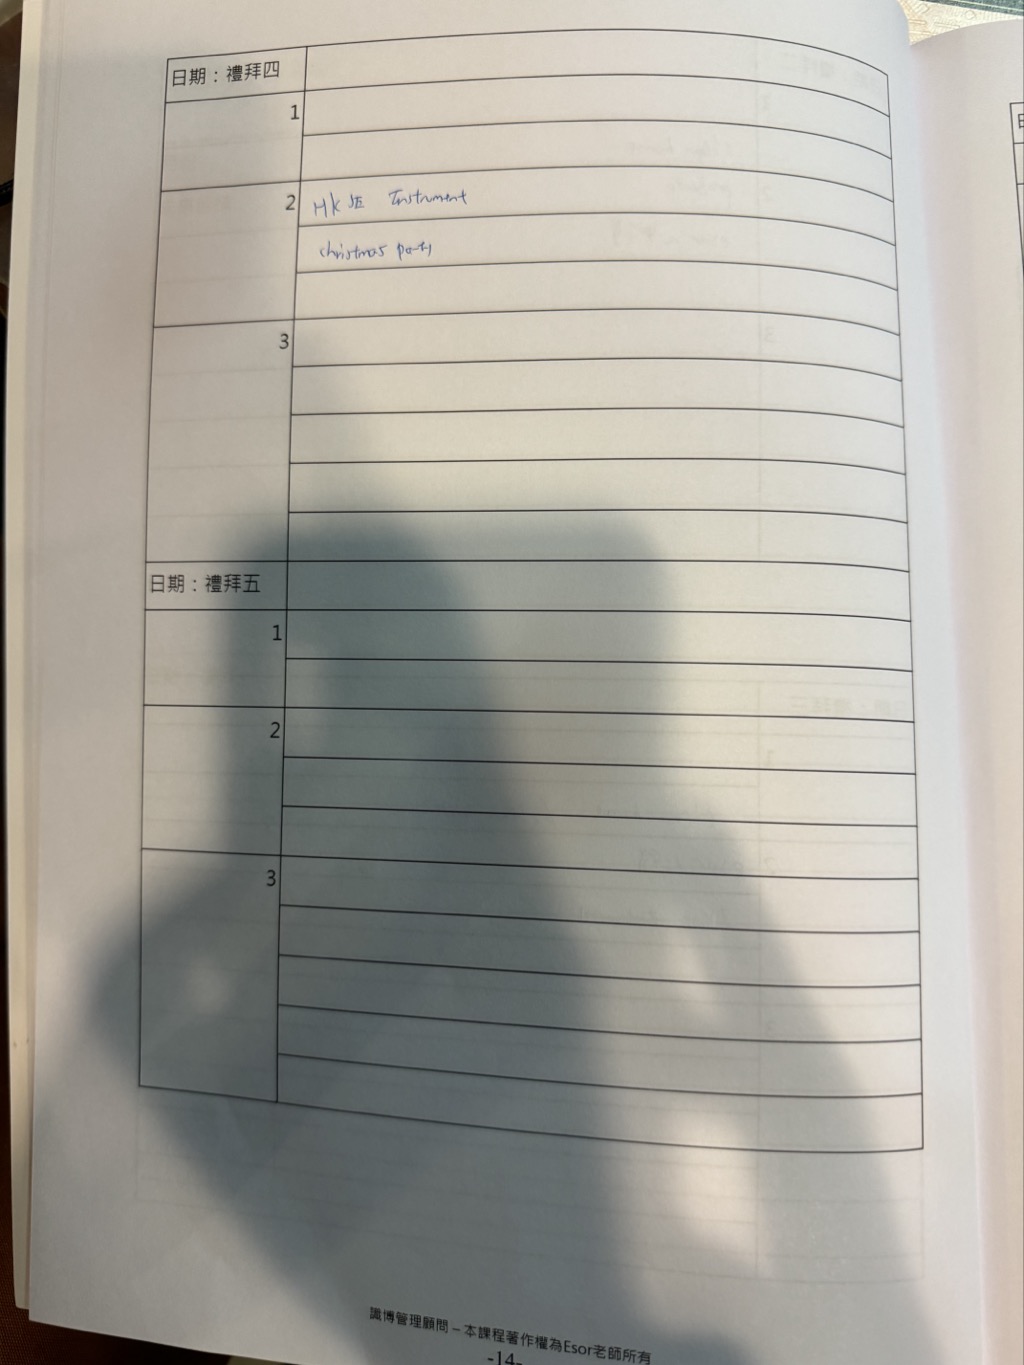 日期：禮拜四
1
2 HK Instrument
Christmas party
3
日期：禮拜五
1
2
3
識博管理顧問 – 本課程著作權為Esor老師所有
-14-